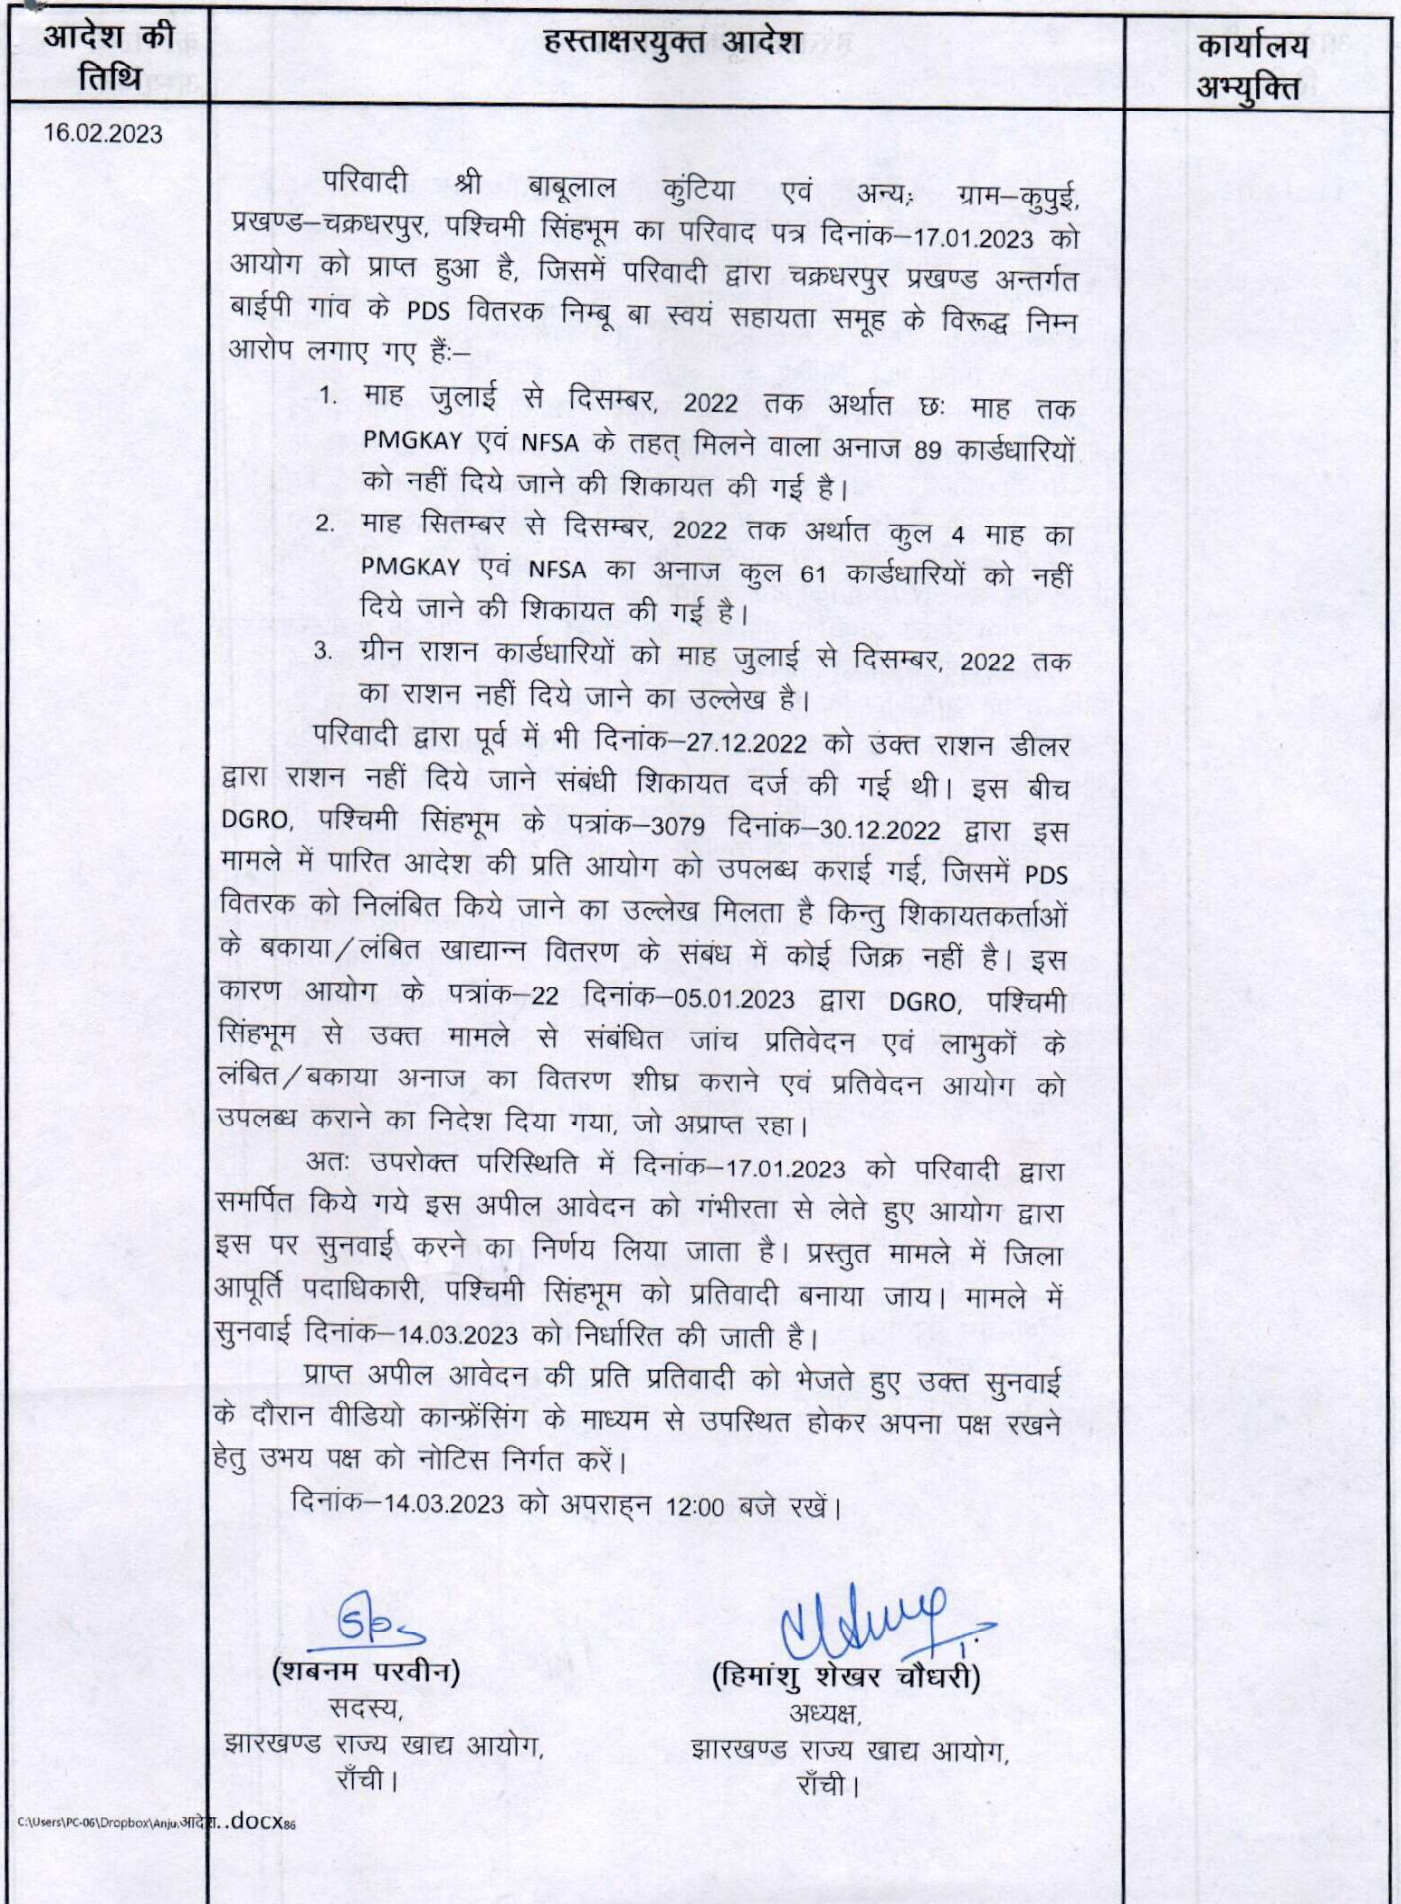 आदेश की
तिथि
हस्ताक्षरयुक्त आदेश
कार्यालय
अभ्युक्ति
16.02.2023
परिवादी श्री बाबूलाल कुंटिया एवं अन्य, ग्राम–कुपुई,
प्रखण्ड–चक्रधरपुर, पश्चिमी सिंहभूम का परिवाद पत्र दिनांक–17.01.2023 को
आयोग को प्राप्त हुआ है, जिसमें परिवादी द्वारा चक्रधरपुर प्रखण्ड अन्तर्गत
बाईपी गांव के PDS वितरक निम्बू बा स्वयं सहायता समूह के विरूद्ध निम्न
आरोप लगाए गए हैंः–
1. माह जुलाई से दिसम्बर, 2022 तक अर्थात छः माह तक
PMGKAY एवं NFSA के तहत् मिलने वाला अनाज 89 कार्डधारियों
को नहीं दिये जाने की शिकायत की गई है।
2. माह सितम्बर से दिसम्बर, 2022 तक अर्थात कुल 4 माह का
PMGKAY एवं NFSA का अनाज कुल 61 कार्डधारियों को नहीं
दिये जाने की शिकायत की गई है।
3. ग्रीन राशन कार्डधारियों को माह जुलाई से दिसम्बर, 2022 तक
का राशन नहीं दिये जाने का उल्लेख है।
परिवादी द्वारा पूर्व में भी दिनांक–27.12.2022 को उक्त राशन डीलर
द्वारा राशन नहीं दिये जाने संबंधी शिकायत दर्ज की गई थी। इस बीच
DGRO, पश्चिमी सिंहभूम के पत्रांक–3079 दिनांक–30.12.2022 द्वारा इस
मामले में पारित आदेश की प्रति आयोग को उपलब्ध कराई गई, जिसमें PDS
वितरक को निलंबित किये जाने का उल्लेख मिलता है किन्तु शिकायतकर्ताओं
के बकाया/लंबित खाद्यान्न वितरण के संबंध में कोई जिक्र नहीं है। इस
कारण आयोग के पत्रांक–22 दिनांक–05.01.2023 द्वारा DGRO, पश्चिमी
सिंहभूम से उक्त मामले से संबंधित जांच प्रतिवेदन एवं लाभुकों के
लंबित/बकाया अनाज का वितरण शीघ्र कराने एवं प्रतिवेदन आयोग को
उपलब्ध कराने का निदेश दिया गया, जो अप्राप्त रहा।
अतः उपरोक्त परिस्थिति में दिनांक–17.01.2023 को परिवादी द्वारा
समर्पित किये गये इस अपील आवेदन को गंभीरता से लेते हुए आयोग द्वारा
इस पर सुनवाई करने का निर्णय लिया जाता है। प्रस्तुत मामले में जिला
आपूर्ति पदाधिकारी, पश्चिमी सिंहभूम को प्रतिवादी बनाया जाय। मामले में
सुनवाई दिनांक–14.03.2023 को निर्धारित की जाती है।
प्राप्त अपील आवेदन की प्रति प्रतिवादी को भेजते हुए उक्त सुनवाई
के दौरान वीडियो कान्फ्रेंसिंग के माध्यम से उपस्थित होकर अपना पक्ष रखने
हेतु उभय पक्ष को नोटिस निर्गत करें।
दिनांक–14.03.2023 को अपराह्न 12:00 बजे रखें।
(शबनम परवीन)
सदस्य,
झारखण्ड राज्य खाद्य आयोग,
राँची।
(हिमांशु शेखर चौधरी)
अध्यक्ष,
झारखण्ड राज्य खाद्य आयोग,
राँची।
C:\Users\PC-06\Dropbox\Anju\आदेश..docx86